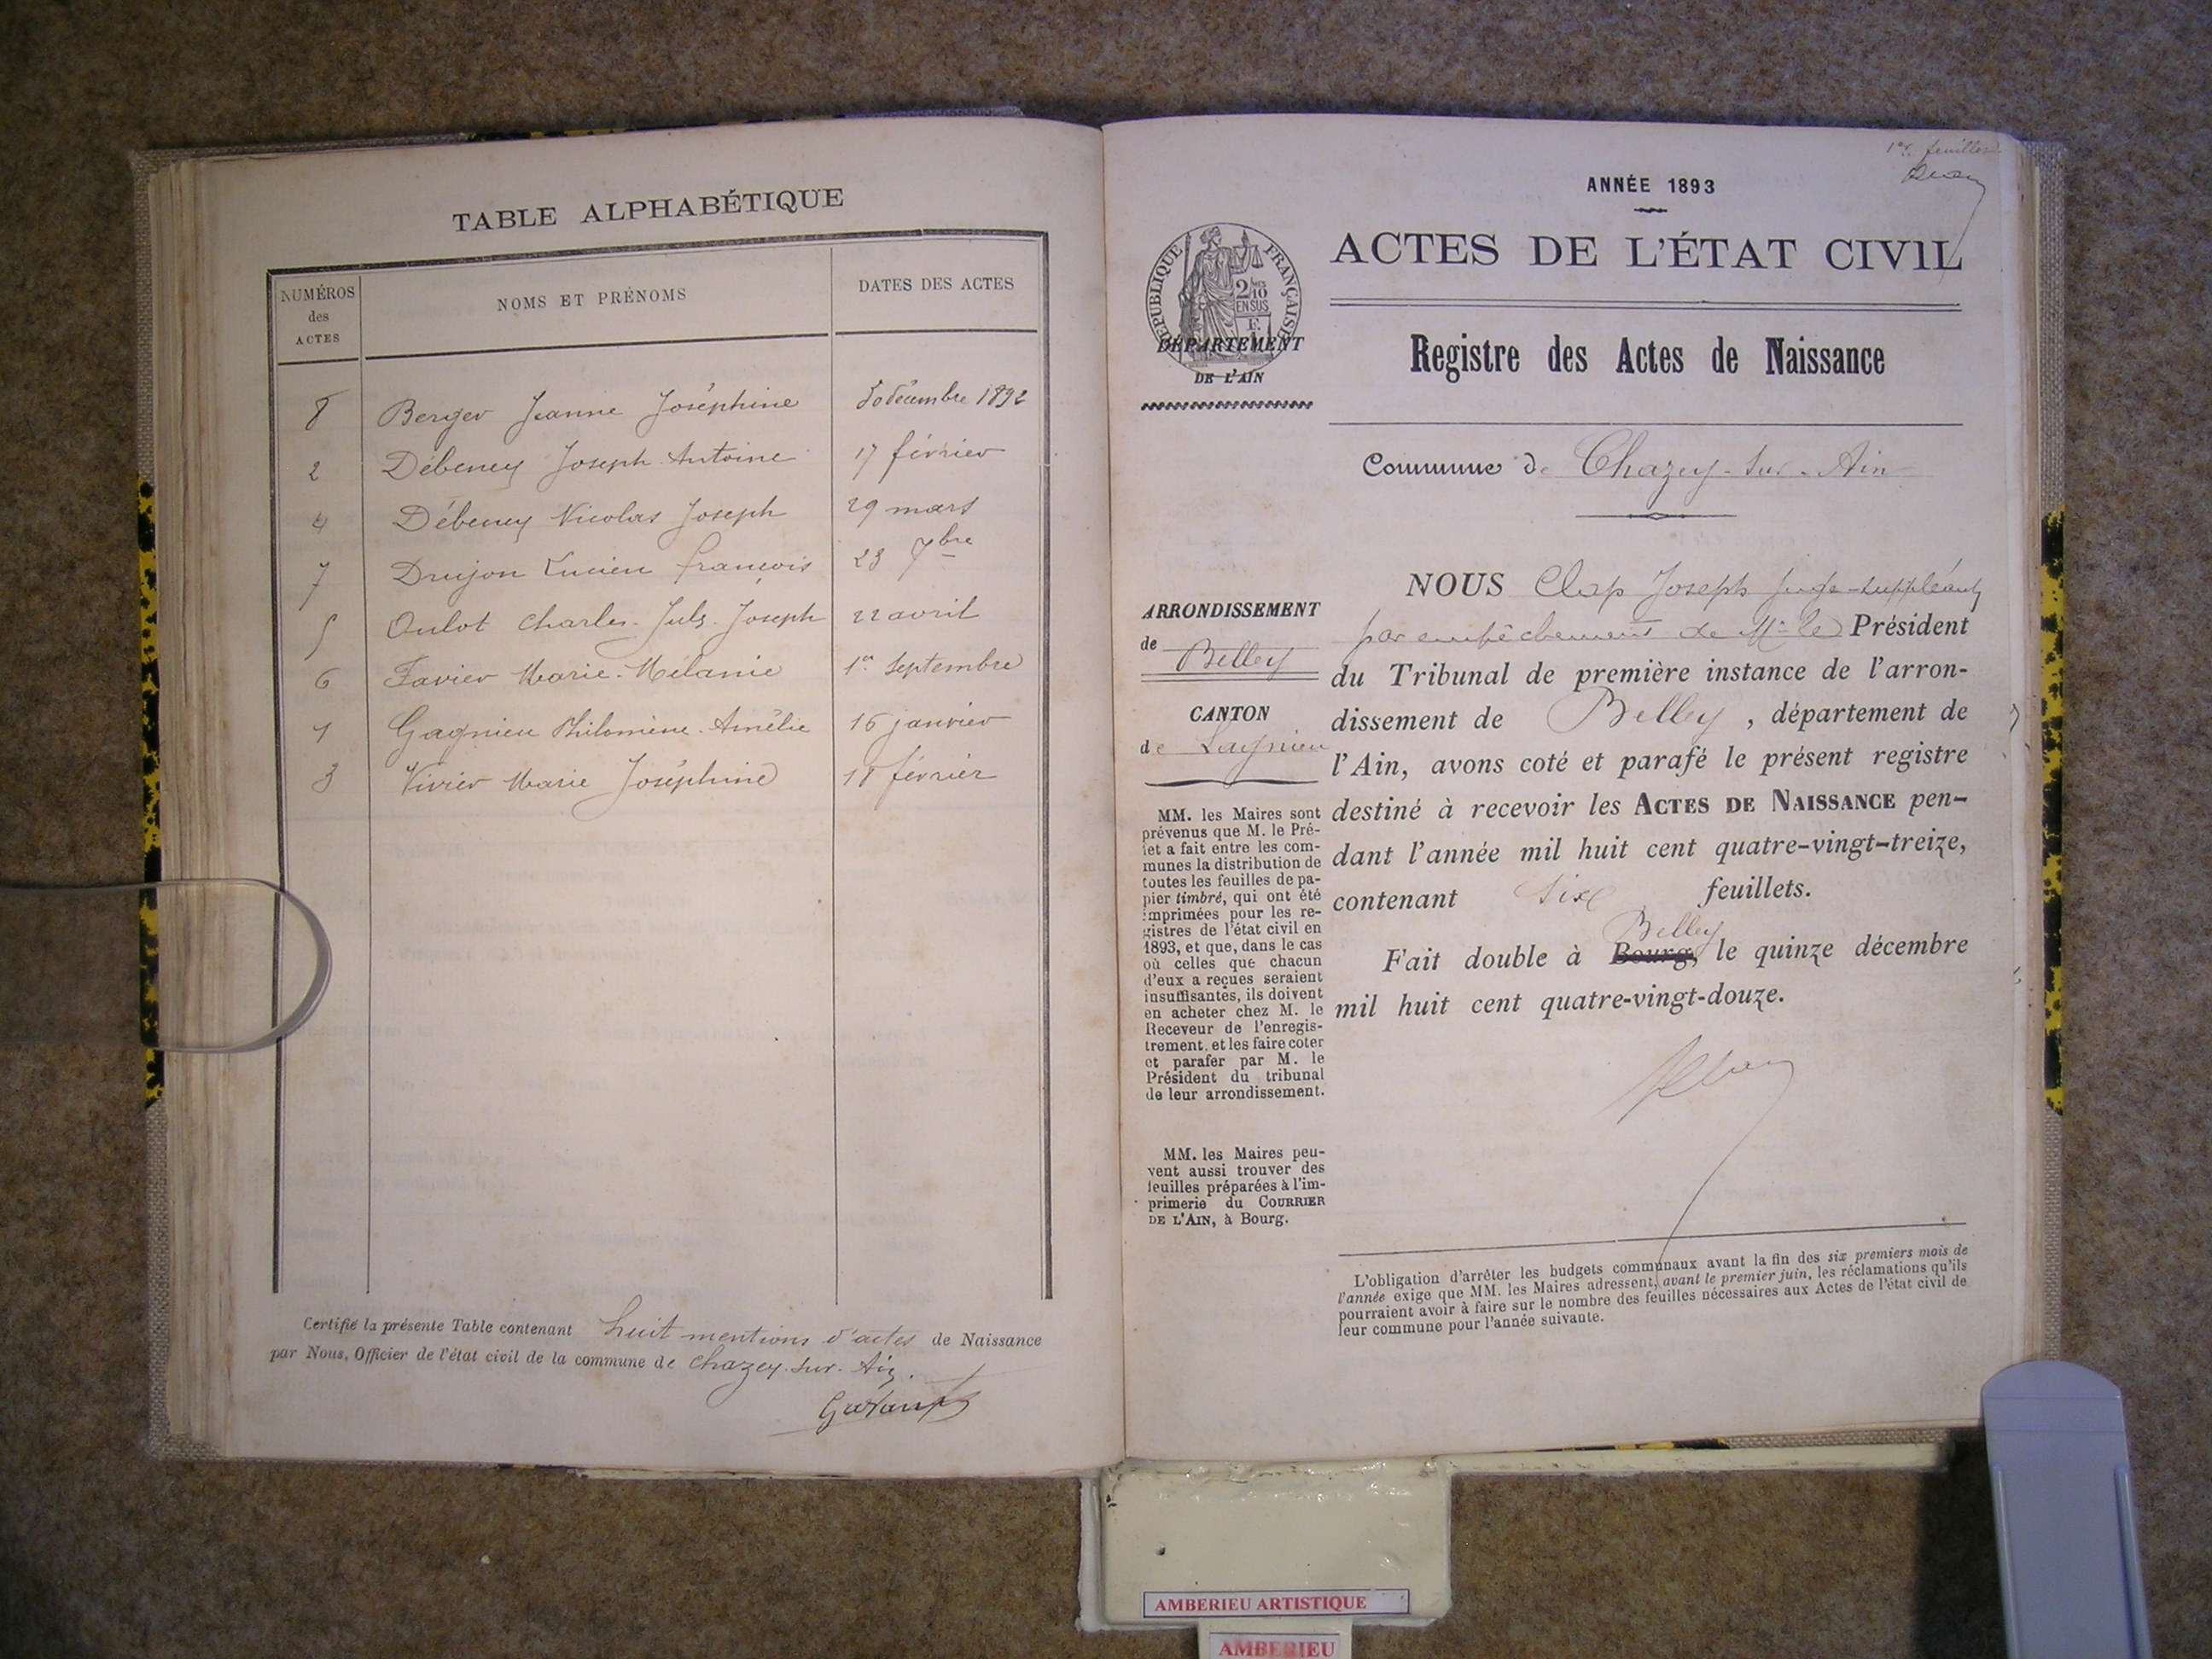 TABLE ALPHABÉTIQUE
NUMÉROS des ACTES
NOMS ET PRÉNOMS
DATES DES ACTES
8 Berger Jeanne Joséphine 30 décembre 1892
2 Débeney Joseph Antoine 17 février
4 Débeney Nicolas Joseph 29 mars
7 Drujon Lucien françois 23 7bre
5 Oulot Charles Juls Joseph 22 avril
6 Favier Marie Mélanie 1er Septembre
1 Gagnieu Philomène Amélie 16 janvier
3 Vivier Marie Joséphine 18 février
Certifié la présente Table contenant huit mentions d'actes de Naissance
par Nous, Officier de l'état civil de la commune de Chazey-sur-Ain.
1er feuillet
ANNÉE 1893
RÉPUBLIQUE FRANÇAISE
2/10 EN SUS
DÉPARTEMENT
DE L'AIN
ACTES DE L'ÉTAT CIVIL
Registre des Actes de Naissance
Commune de Chazey-sur-Ain
ARRONDISSEMENT
de Belley
CANTON
de Lagnieu
MM. les Maires sont
prévenus que M. le Pré-
fet a fait entre les com-
munes la distribution de
toutes les feuilles de pa-
pier timbré, qui ont été
imprimées pour les re-
gistres de l'état civil en
1893, et que, dans le cas
où celles que chacun
d'eux a reçues seraient
insuffisantes, ils doivent
en acheter chez M. le
Receveur de l'enregis-
trement, et les faire coter
et parafer par M. le
Président du tribunal
de leur arrondissement.
MM. les Maires peu-
vent aussi trouver des
feuilles préparées à l'im-
primerie du COURRIER
DE L'AIN, à Bourg.
NOUS Clap Joseph juge-suppléant
par empêchement de Mr le Président
du Tribunal de première instance de l'arron-
dissement de Belley, département de
l'Ain, avons coté et parafé le présent registre
destiné à recevoir les ACTES DE NAISSANCE pen-
dant l'année mil huit cent quatre-vingt-treize,
contenant six feuillets.
Belley
Fait double à Bourg, le quinze décembre
mil huit cent quatre-vingt-douze.
L'obligation d'arrêter les budgets communaux avant la fin des six premiers mois de
l'année exige que MM. les Maires adressent, avant le premier juin, les réclamations qu'ils
pourraient avoir à faire sur le nombre des feuilles nécessaires aux Actes de l'état civil de
leur commune pour l'année suivante.
AMBERIEU ARTISTIQUE
AMBERIEU